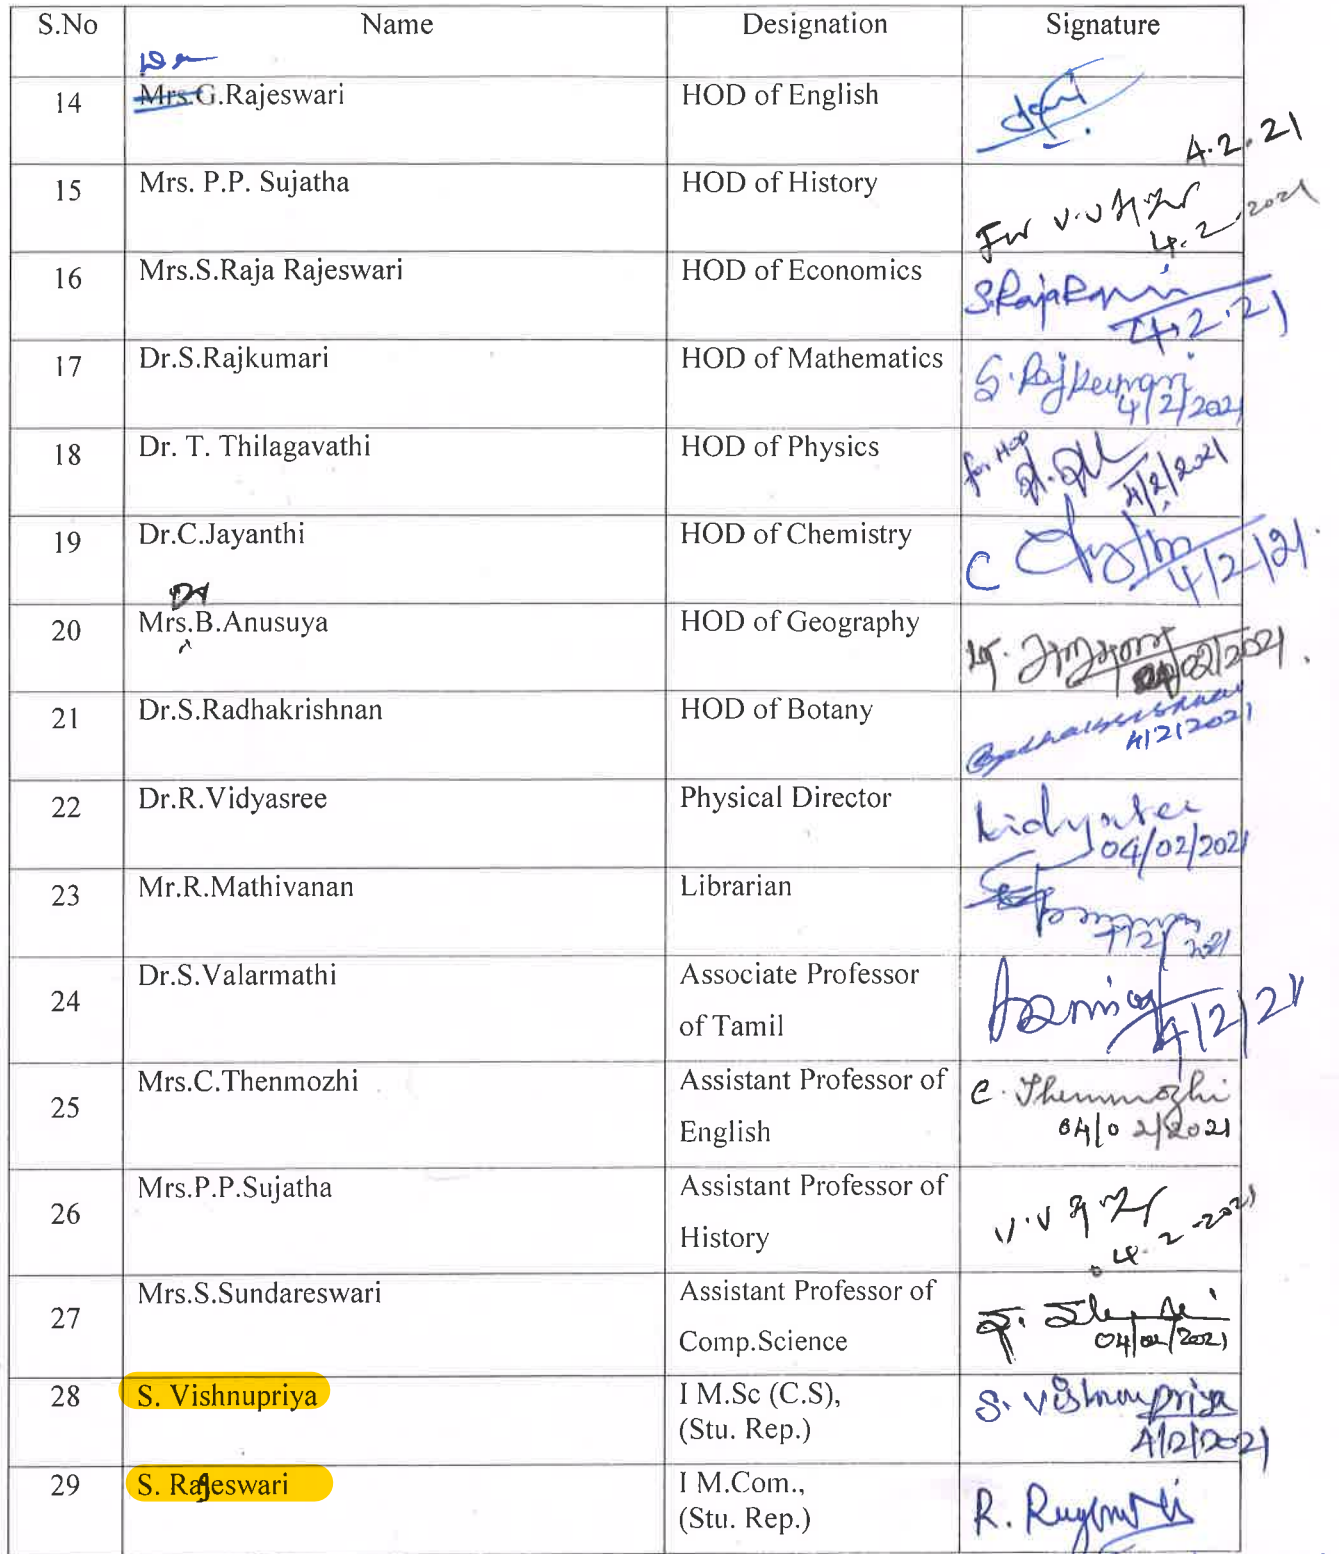 S.No Name Designation Signature
Dr
14 Mrs.G.Rajeswari HOD of English
4.2.21
15 Mrs. P.P. Sujatha HOD of History
For
4.2.2021
16 Mrs.S.Raja Rajeswari HOD of Economics
4.2.21
17 Dr.S.Rajkumari HOD of Mathematics S. Rajkumari
4/2/2021
18 Dr. T. Thilagavathi HOD of Physics for HOD
4/2/2021
19 Dr.C.Jayanthi HOD of Chemistry C
4/2/21.
Dr
20 Mrs.B.Anusuya HOD of Geography
04/02/2021.
21 Dr.S.Radhakrishnan HOD of Botany
4/2/2021
22 Dr.R.Vidyasree Physical Director Vidyasree
04/02/2021
23 Mr.R.Mathivanan Librarian
4/2/2021
24 Dr.S.Valarmathi Associate Professor
of Tamil
4/2/21
25 Mrs.C.Thenmozhi Assistant Professor of C. Thenmozhi
English 04/02/2021
26 Mrs.P.P.Sujatha Assistant Professor of
History 4.2.2021
27 Mrs.S.Sundareswari Assistant Professor of
Comp.Science 04/02/2021
28 S. Vishnupriya I M.Sc (C.S), S. Vishnupriya
(Stu. Rep.) 4/2/2021
29 S. Rajeswari I M.Com.,
(Stu. Rep.) R.